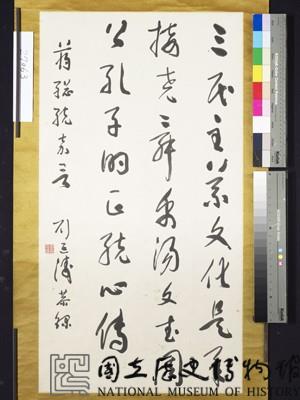 三民主義文化是承
接堯舜禹湯文武周
公孔子的正統心傳
蔣總統嘉言 劉延濤恭錄
國立歷史博物館
NATIONAL MUSEUM OF HISTORY